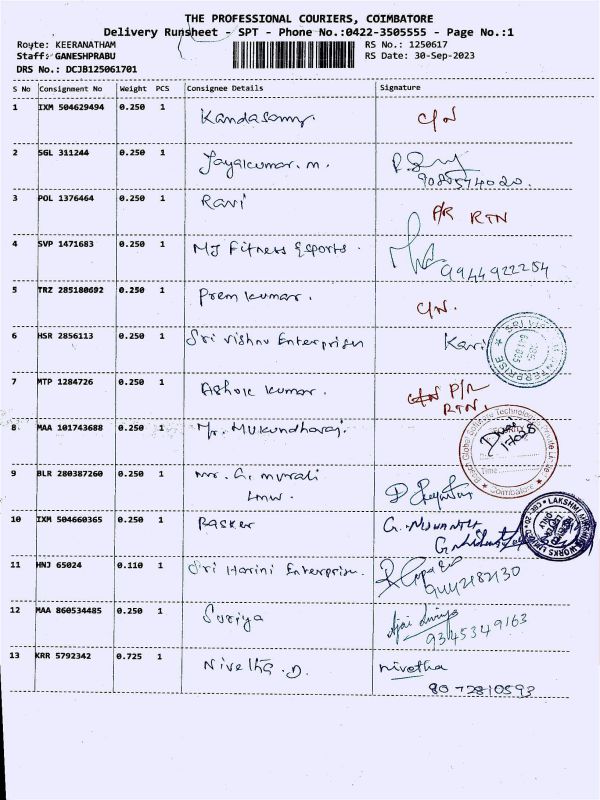 THE PROFESSIONAL COURIERS, COIMBATORE
Delivery Runsheet - SPT - Phone No.:0422-3505555 - Page No.:1
Route: KEERANATHAM RS No.: 1250617
Staff: GANESHPRABU RS Date: 30-Sep-2023
DRS No.: DCJB125061701
S No Consignment No Weight PCS Consignee Details Signature
1 IXM 504629494 0.250 1 Kandasamy. C/N
2 SGL 311244 0.250 1 Jayakumar. m.
9080574020.
3 POL 1376464 0.250 1 Ravi P/R RTN
4 SVP 1471683 0.250 1 MJ Fitness Esports.
9944922254
5 TRZ 285180692 0.250 1 Prem kumar. C/N.
6 HSR 2856113 0.250 1 Sri vishnu Enterprises Kavi
7 MTP 1284726 0.250 1 Ashok kumar. P/R
RTN.
8 MAA 101743688 0.250 1 Mr. Mukundharaj.
9 BLR 280387260 0.250 1 mr. G. murali
LMW.
10 IXM 504660365 0.250 1 Basker
11 HNJ 65024 0.110 1 Sri Harini Enterprises.
9442182130
12 MAA 860534485 0.250 1 Suriya
9345349163
13 KRR 5792342 0.725 1 Nivetha. D. nivetha
8072810593